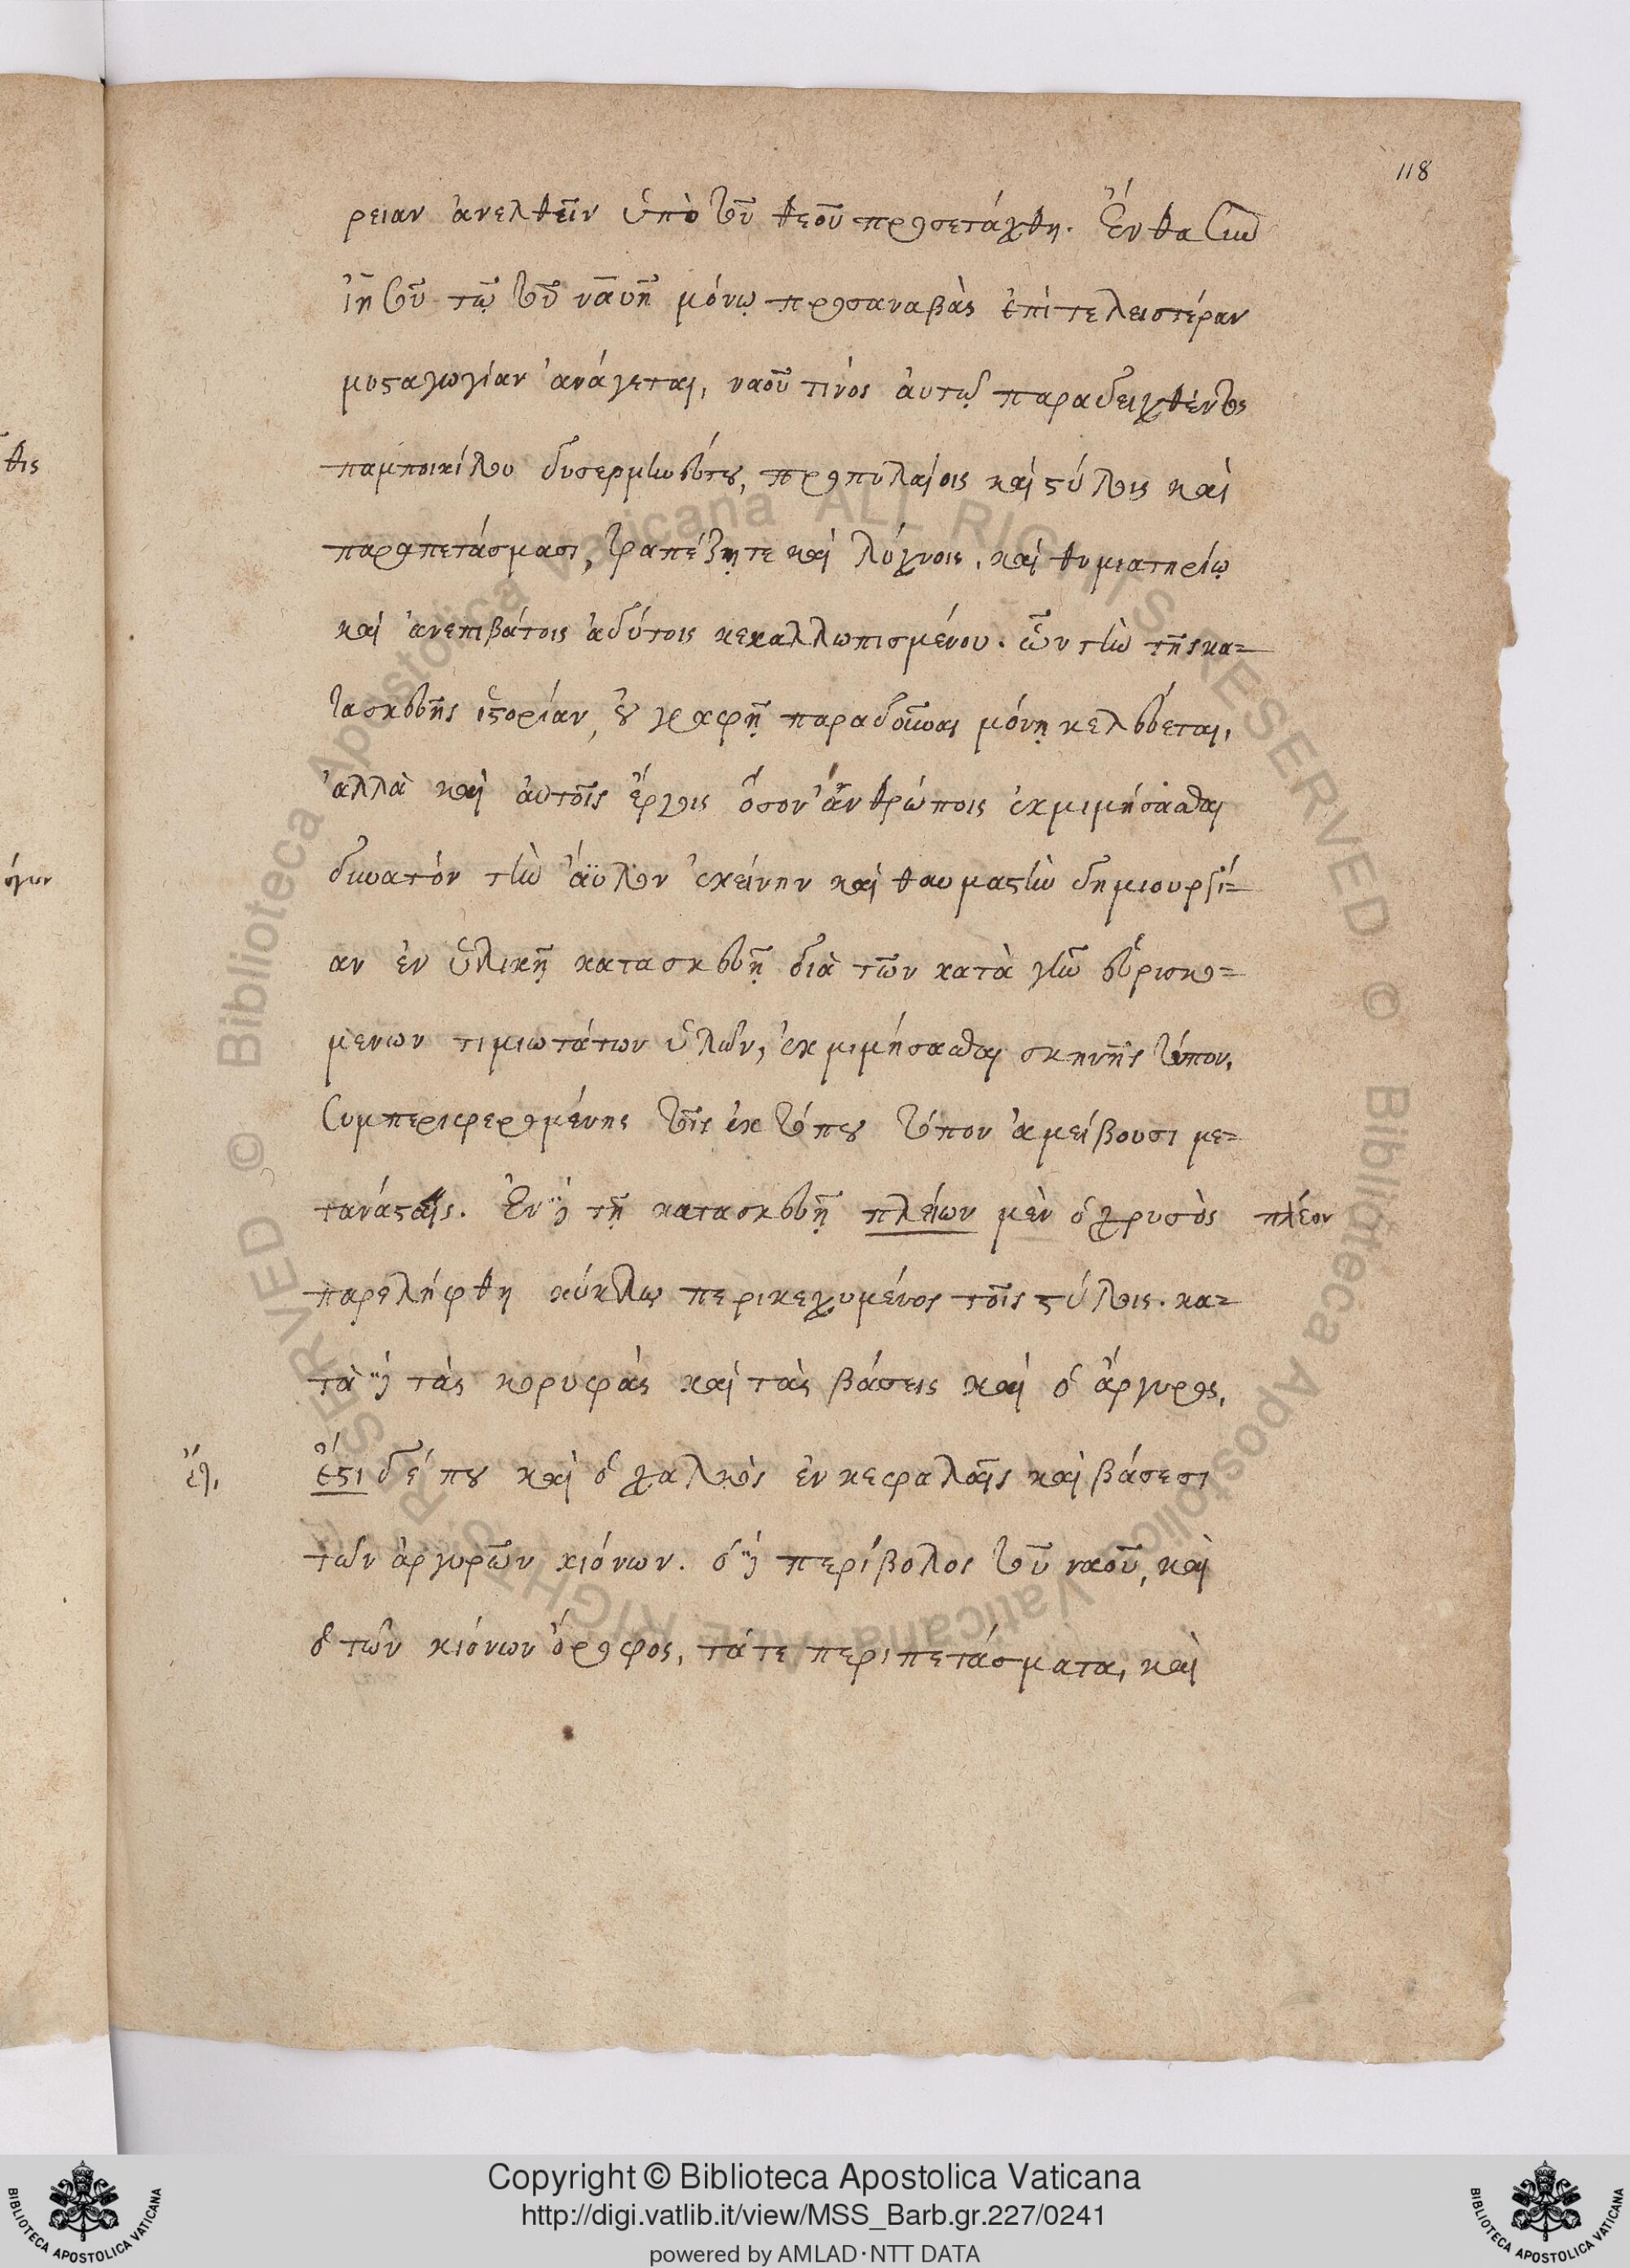 118
ρειαν ἀνελθεῖν ὑπὸ τοῦ θεοῦ προσετάχθη. Ἔνθα σὺν
ἰησοῦ τῷ τοῦ ναυῆ μόνῳ προσαναβὰς ἐπὶ τελειοτέραν
μυσταγωγίαν ἀνάγεται, ναοῦ τινὸς ἀυτῷ παραδειχθέντος
παμποικίλου δυσερμηνεύτου, προπυλαίοις καὶ στύλοις καὶ
παραπετάσμασι, τραπέζῃ τε καὶ λύχνοις, καὶ θυμιατηρίῳ
καὶ ἀνεπιβάτοις ἀδύτοις κεκαλλωπισμένου. ὧν τὴν τῆς κα=
τασκευῆς ἱστορίαν, οὐ γραφῇ παραδοῦναι μόνῃ κελεύεται,
ἀλλὰ καὶ ἀυτοῖς ἔργοις ὅσον ἀνθρώποις ἐκμιμήσασθαι
δυνατόν τὴν ἄϋλον ἐκείνην καὶ θαυμαστὴν δημιουργί=
αν ἐν ὑλικῇ κατασκευῇ διὰ τῶν κατὰ γῆν εὑρισκο=
μενων τιμιωτάτων ὑλῶν, ἐκμιμήσασθαι σκηνῆς τύπον,
συμπεριφερομένης τοῖς ἐκ τόπου τόπον ἀμείβουσι με=
τανάσταις. Ἐν δὲ τῇ κατασκευῇ πλείων μὲν ὁ χρυσὸς πλέον
παρελήφθη κύκλῳ περικεχυμένος τοῖς στύλοις. κα=
τὰ δὲ τὰς κορυφὰς καὶ τὰς βάσεις καὶ ὁ ἄργυρος,
ἔστι δέ που καὶ ὁ χαλκὸς ἐν κεφαλαῖς καὶ βάσεσι
τῶν ἀργυρῶν κιόνων. ὁ δὲ περίβολος τοῦ ναοῦ, καὶ
ὁ τῶν κιόνων ὄροφος, τά τε περιπετάσματα, καὶ
© Biblioteca Apostolica Vaticana ALL RIGHTS RESERVED © Biblioteca Apostolica Vaticana ALL RIGHTS RESERVED
Copyright © Biblioteca Apostolica Vaticana
http://digi.vatlib.it/view/MSS_Barb.gr.227/0241
powered by AMLAD·NTT DATA
BIBLIOTECA APOSTOLICA VATICANA
BIBLIOTECA APOSTOLICA VATICANA